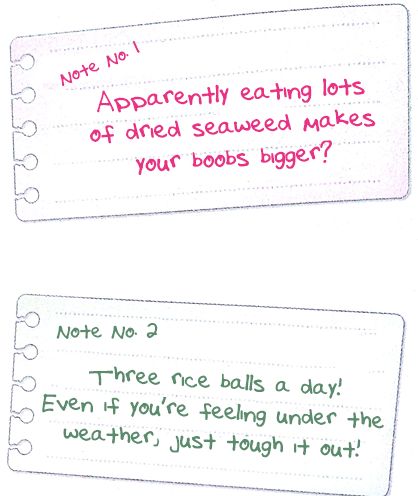 Note No. 1
Apparently eating lots
of dried seaweed makes
your boobs bigger?
Note No. 2
Three rice balls a day!
Even if you're feeling under the
weather, just tough it out!